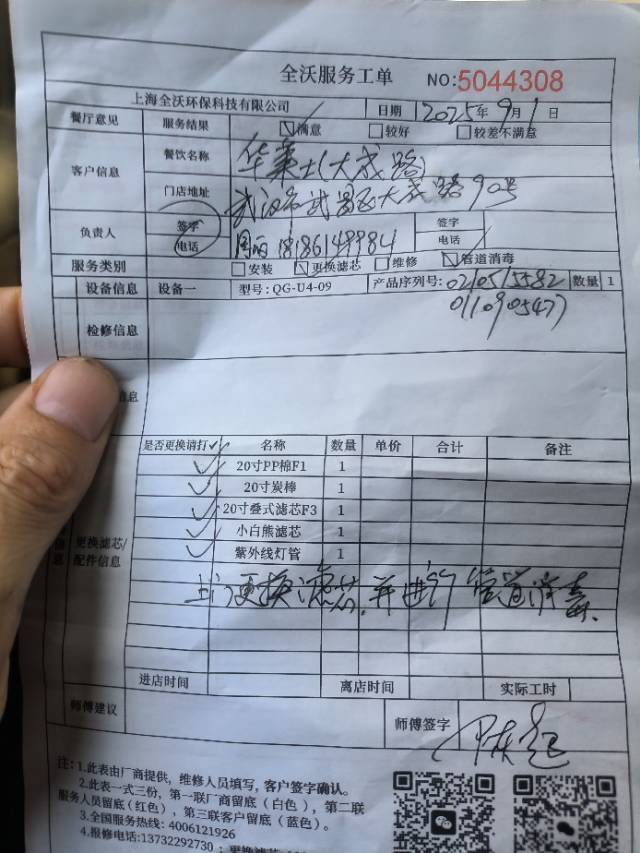 全沃服务工单 NO:5044308
上海全沃环保科技有限公司 日期 2025年9月1日
餐厅意见 服务结果 满意 较好 较差不满意
客户信息 餐饮名称 华莱士(大成路)
门店地址 武汉市武昌区大成路90号
负责人 签字 签字
电话 周丽 18186149984 电话
服务类别 安装 更换滤芯 维修 管道消毒
设备信息 设备一 型号:QG-U4-09 产品序列号: 020515582 数量 1
0110905477
检修信息
息
是否更换请打✓ 名称 数量 单价 合计 备注
✓ 20寸PP棉F1 1
✓ 20寸炭棒 1
✓ 20寸叠式滤芯F3 1
✓ 小白熊滤芯 1
✓ 紫外线灯管 1
息 更换滤芯/
配件信息
上门更换滤芯,并进行管道消毒.
进店时间 离店时间 实际工时
师傅建议 师傅签字
注:1.此表由厂商提供，维修人员填写,客户签字确认。
2.此表一式三份，第一联厂商留底（白色），第二联
服务人员留底(红色)，第三联客户留底（蓝色）。
3.全国服务热线: 4006121926
4.报修电话:13732292730 ; 更换滤芯